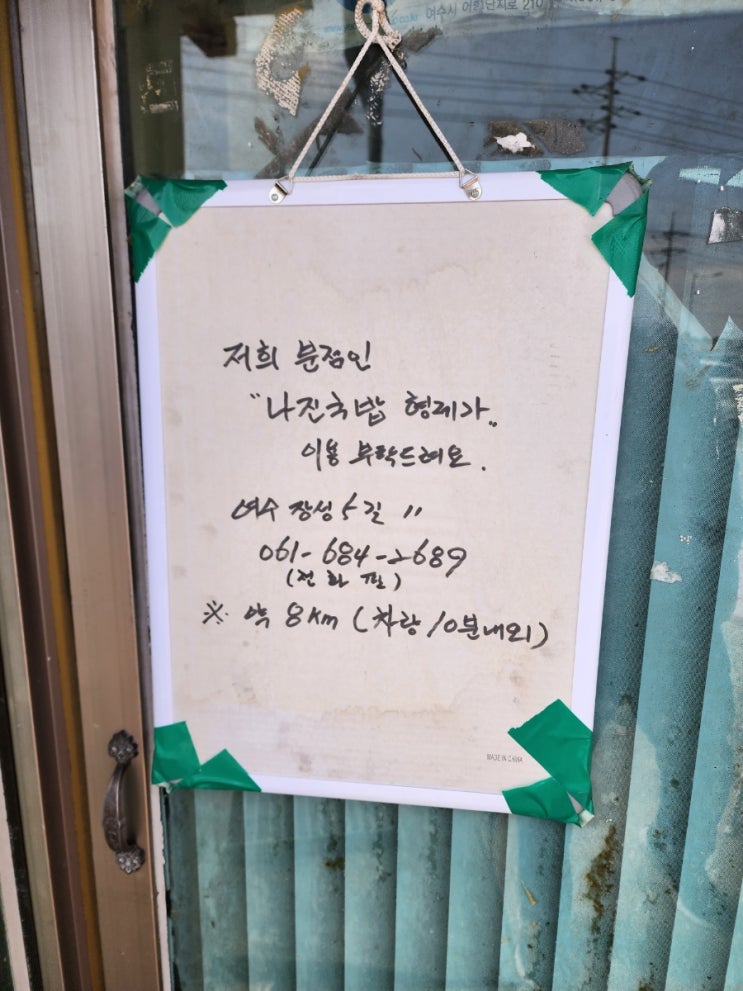 여수시 어항단지로 210
저희 분점인
"나진국밥 형제가"
이용 부탁드려요.
여수 장성5길 11
061-684-2689
(전화 필)
※ 약 8km (차량 10분내외)
MADE IN CHINA